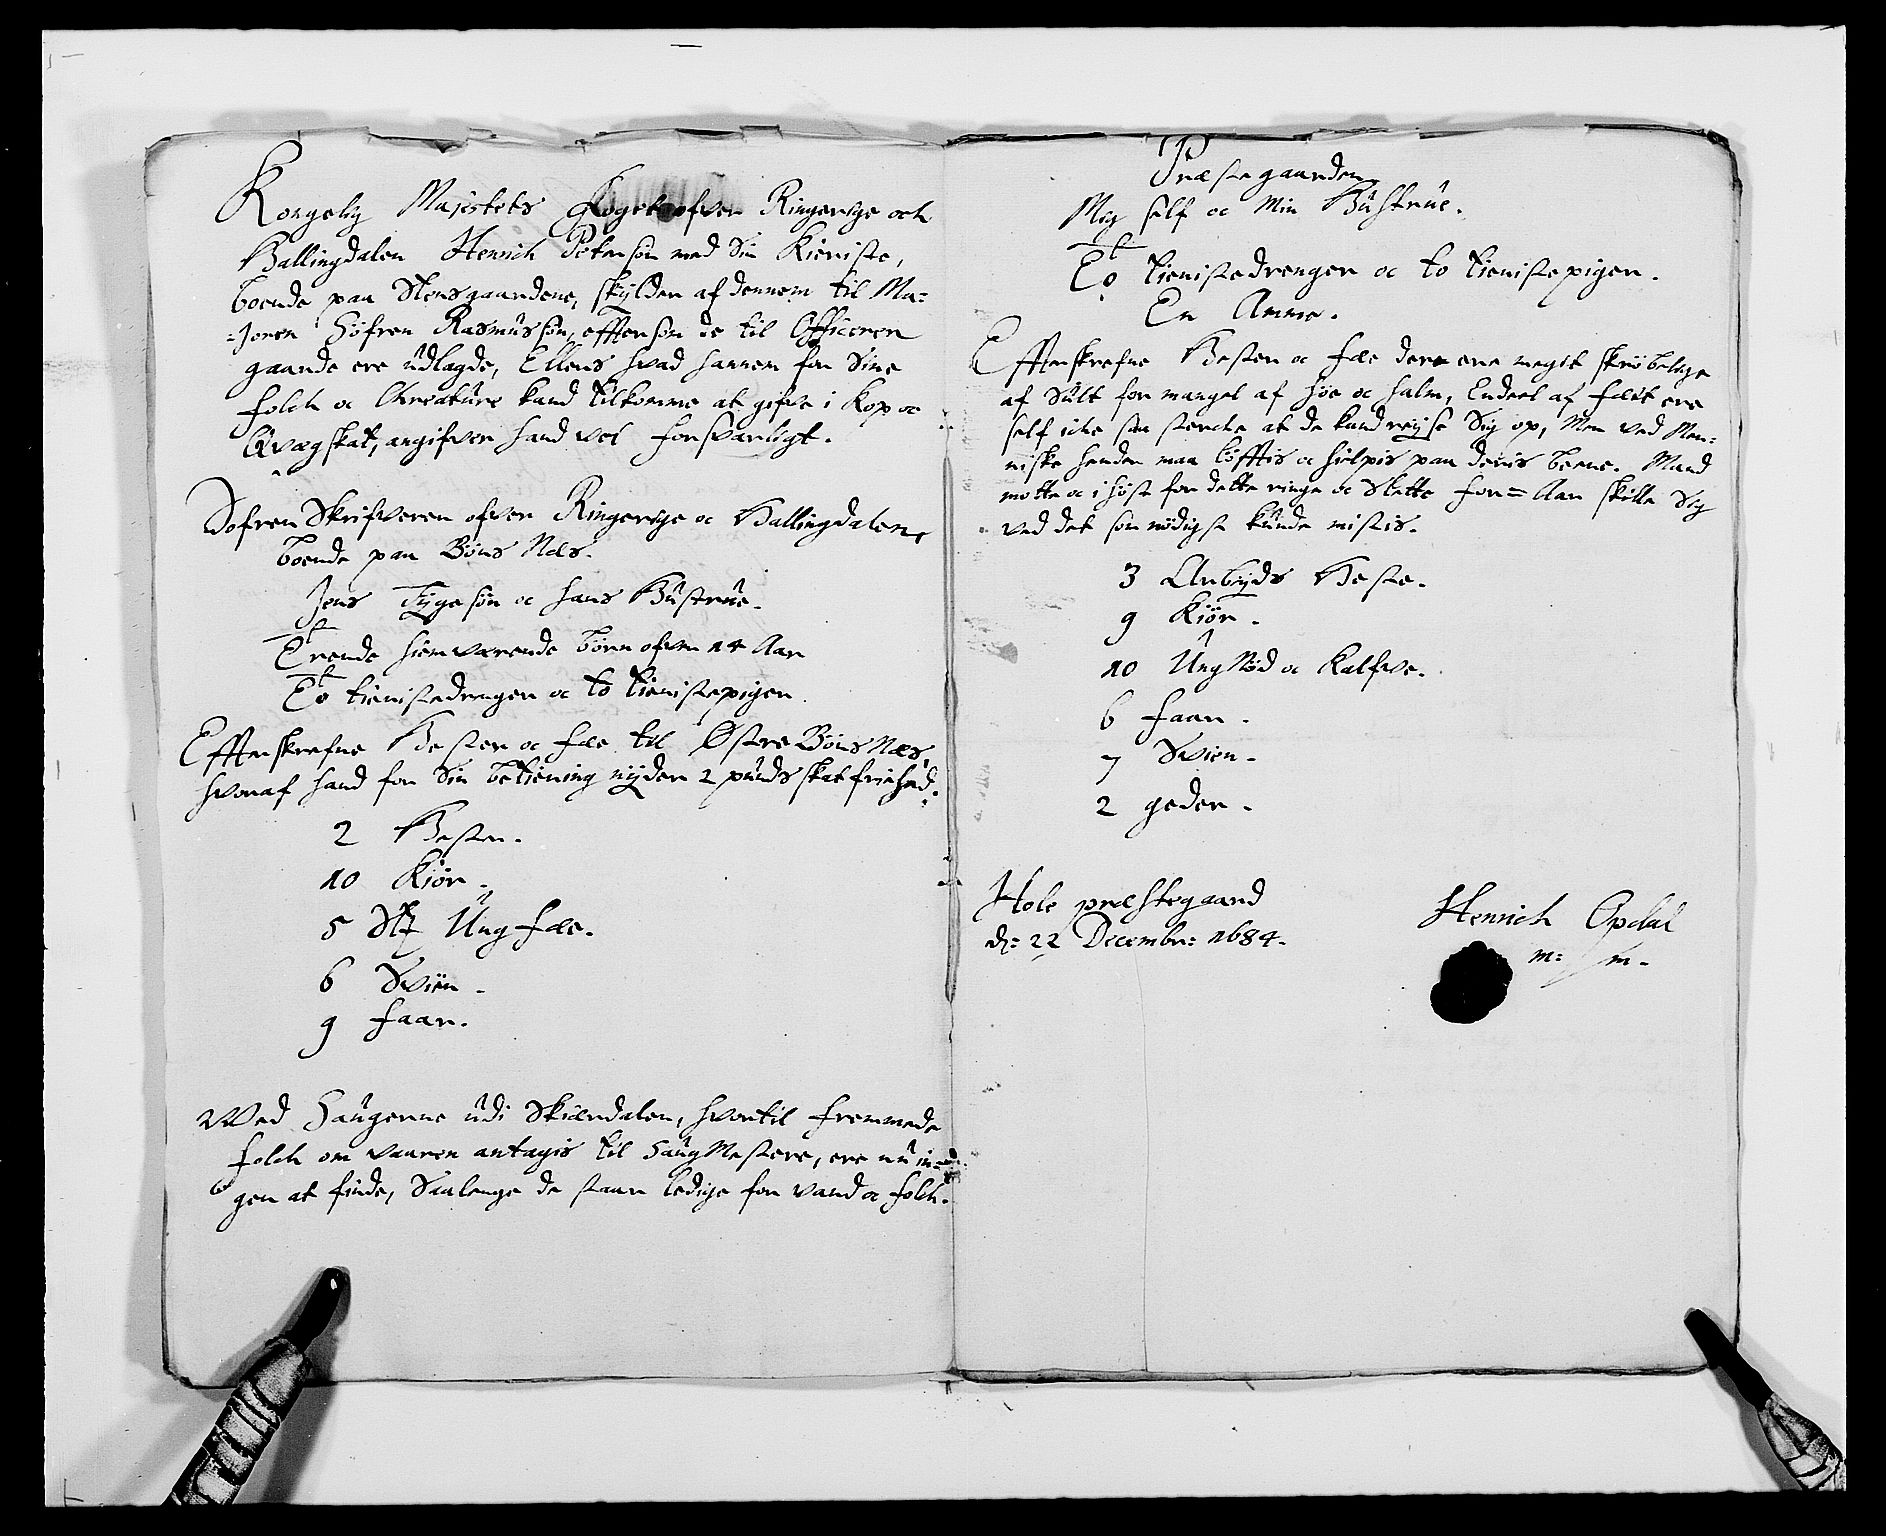 Kongelig Majestets Foget ofver Ringerige och
Hallingdalen Henrich Petersøn med Sin Kieriste,
boende paa Stensgaardene, skylder af dennem til Ma=
=joren Søfren Rasmussøn, efftersom de til Officeren
gaarde ere udlagde, Ellers hvad hannem for Sine
folch oc Chreature kand tilkomme at gifve i Kop oc
Qvægskat, angifver hand vel forsvarligt.
Sofren Skrifveren ofver Ringerige oc Hallingdalen,
boende paa Bøns Næs.
Jens Tygesøn oc hans Hustrue.
Trende hiemværende børn ofver 14 Aar
To tienistedrenger oc to tienistepiger
Effterskrefne Hester oc fæe til Østre Bøns Næs,
hvoraf hand for Sin betiening nyder 2 punds skatfriehed.
2 Hester.
10 Kiør.
5 St Ung fæe.
6 Svien.
9 faar.
Wed Saugerne udi Skiærdalen, hvortil fremmede
folch om vaaren antagis til SaugMestere, ere nu in=
gen at finde, Saalenge de staar ledige for vand oc folch.
Præstegaarden
Mig self oc Min Hustrue.
To tienistedrenger oc to tienistepiger.
En Amme.
Effterskrefne Hester oc fæe der ere meget skrøbelige
af Sult for mangel af høe oc halm, Endeel af fæet ere
self iche saa sterche at de kand reyse Sig op, Men ved Men=
niske hender maa løfftis oc hielpis paa deris beene. Mand
motte oc i høst for dette ringe oc Slette for= Aar skille Sig
ved det som nødigst kunde mistis.
3 Arbyds Heste.
9 Kiør.
10 Ung Nød oc Kalfve.
6 faar.
7 Svien.
2 geder.
Hole præstegaard
d: 22 Decembr: 1684.
Henrich Opdal
m: m.